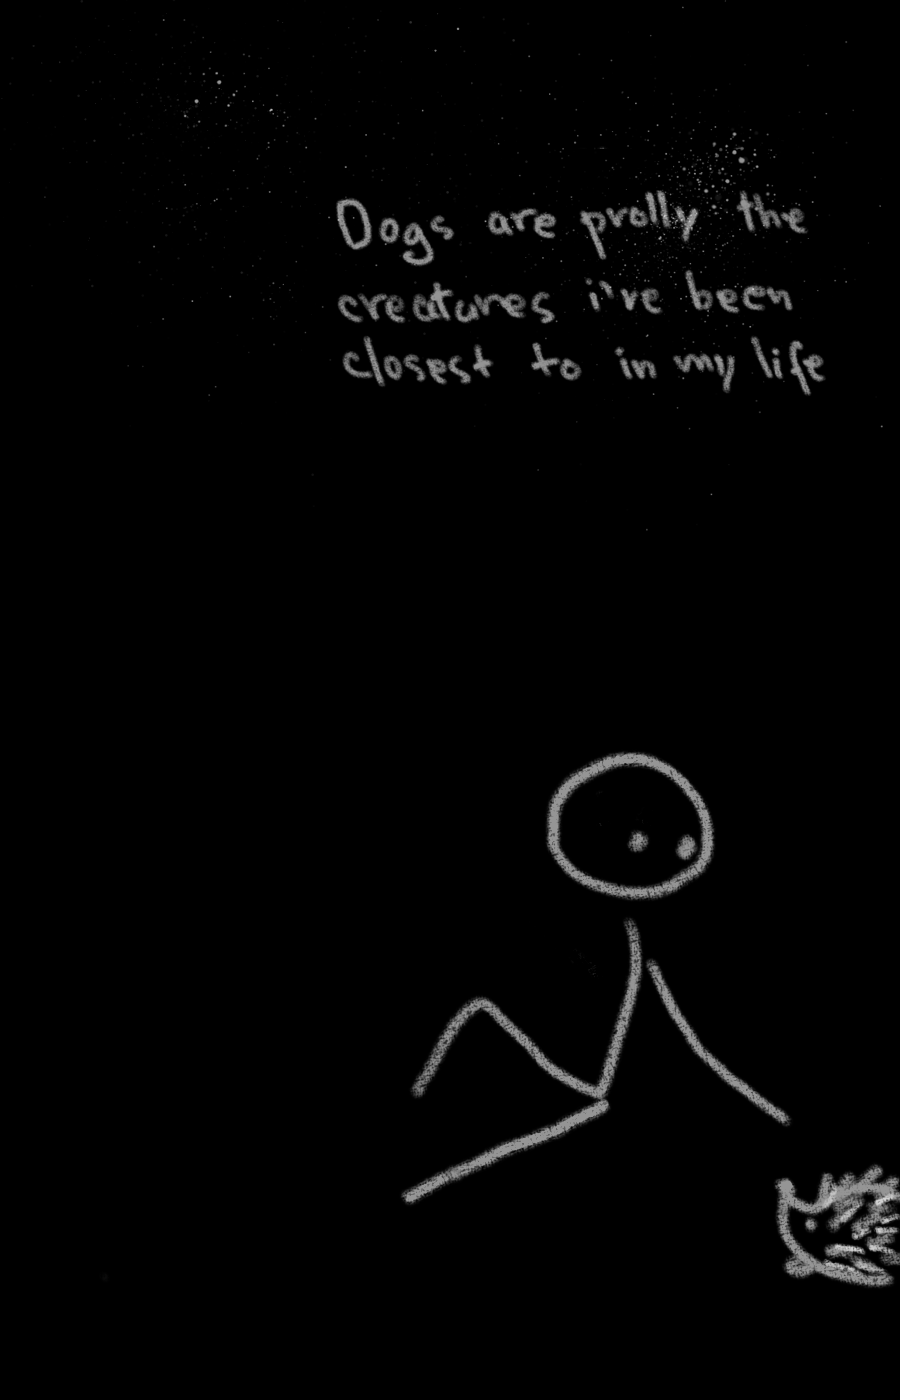 Dogs are prolly the
creatures i've been
closest to in my life